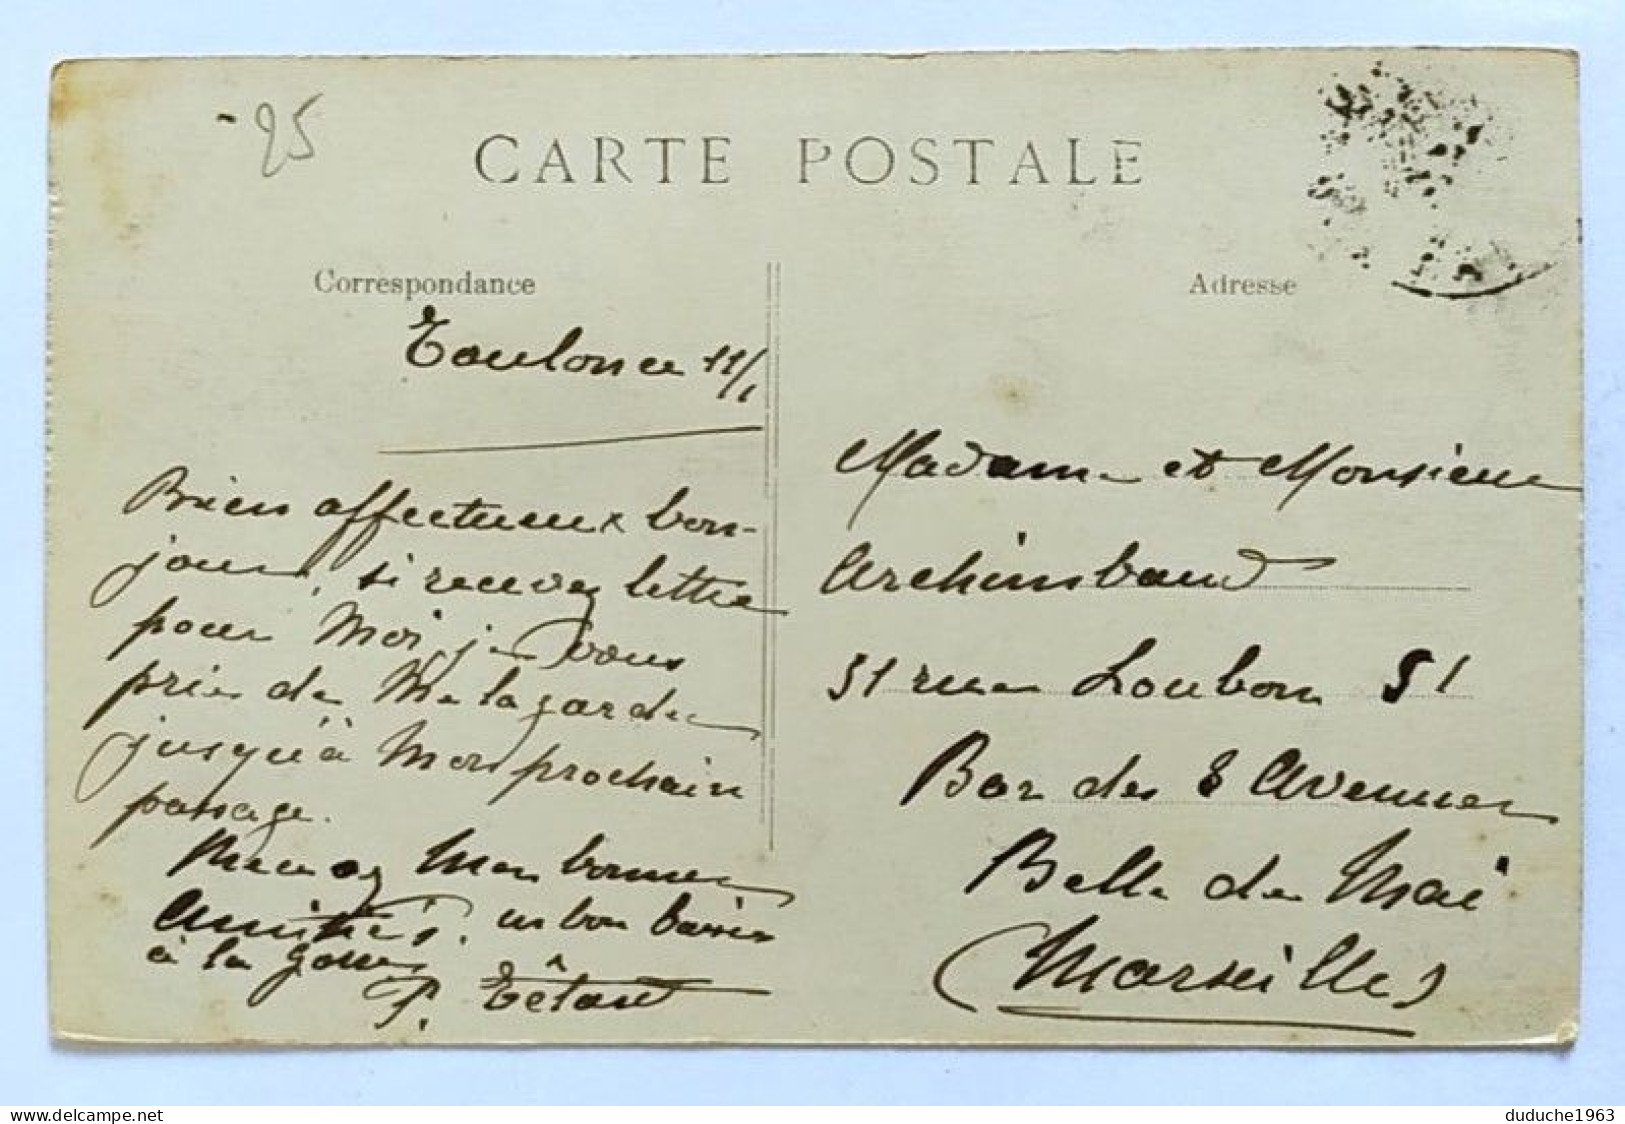 -95
CARTE POSTALE
Correspondance
Adresse
Toulouse 11/1
Bien affectueux bon-
jour, si recevez lettre
pour moi, je vous
prie de me la garder
jusqu'à mon prochain
passage.
Recevez mes bonnes
amitiés. un bon baiser
à la gosse
P. Têtard
Madame et Monsieur
Archimbaud
51 rue Loubon 51
Bar des 3 Avenues
Belle de Mai
(Marseille)
delcampe.net
duduche1963